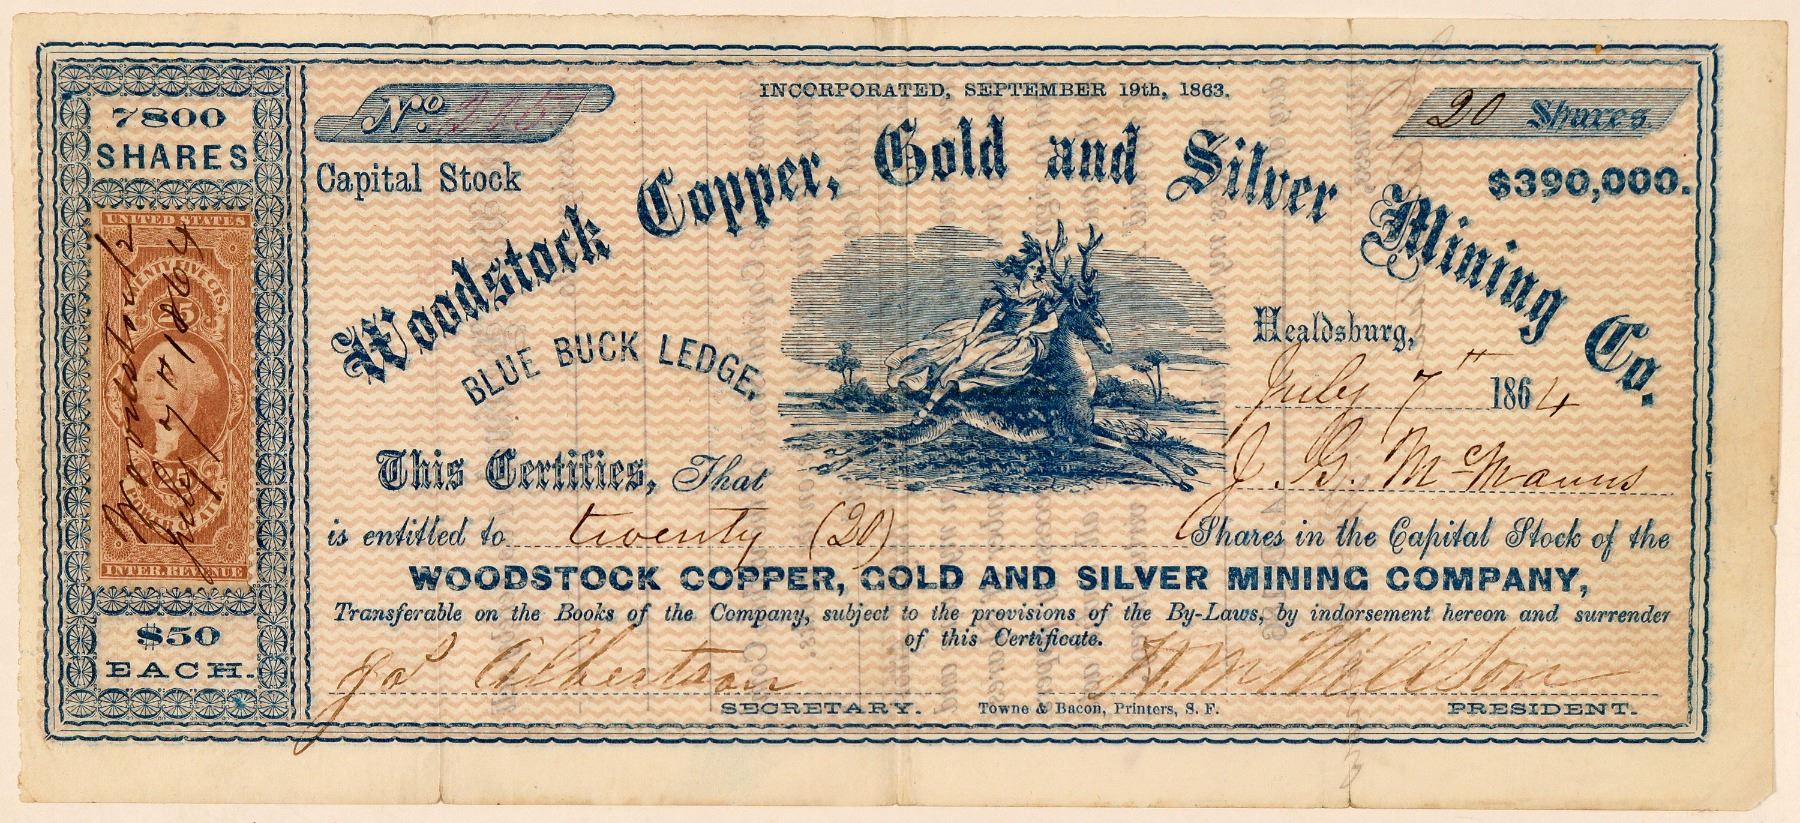 INCORPORATED, SEPTEMBER 19th, 1863.
7800
SHARES
No. 205
20 Shares
Capital Stock
$390,000.
Woodstock Copper, Gold and Silver Mining Co.
BLUE BUCK LEDGE.
UNITED STATES
TWENTY FIVE CTS.
25
25
INTER. REVENUE
Woodstock
July 7th 1864
Healdsburg,
July 7th 1864
This Certifies, That J. G. McManus
is entitled to twenty (20) Shares in the Capital Stock of the
WOODSTOCK COPPER, GOLD AND SILVER MINING COMPANY,
Transferable on the Books of the Company, subject to the provisions of the By-Laws, by indorsement hereon and surrender
of this Certificate.
$50
EACH.
Jos Albertson
H. M. Willson
SECRETARY.
Towne & Bacon, Printers, S. F.
PRESIDENT.